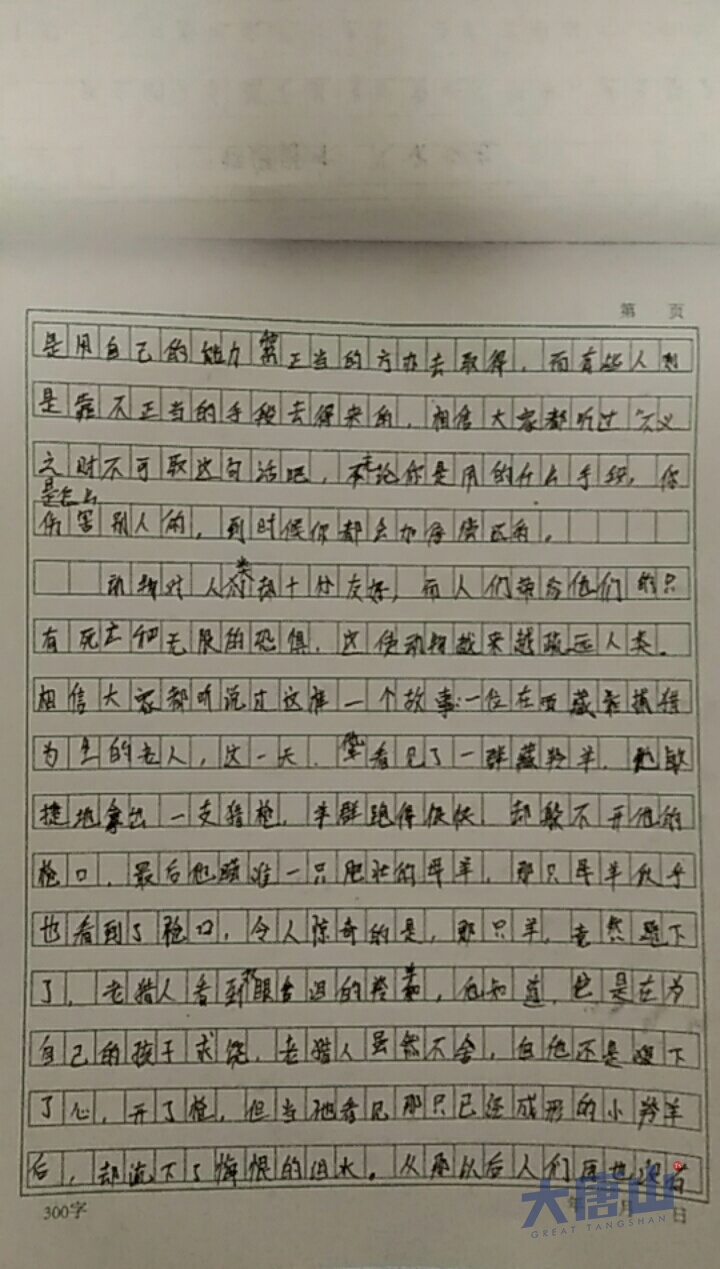 第 页
是用自己的能力靠正当的方办去取得，而有些人则
是靠不正当的手段去得来的，相信大家都听过“不义
之财不可取这句话吧，不论你是用的什么手段，你
是怎么
伤害别人的，到时候你都会加倍偿还的。
动物对人类却十分友好，而人们带给他们的只
有死亡和无限的恐惧，这使动物越来越疏远人类。
相信大家都听说过这样一个故事：一位在西藏靠捕猎
为生的老人，这一天，看见了一群藏羚羊，他敏
捷地拿出一支猎枪，羊群跑得很快，却躲不开他的
枪口，最后他瞄准一只肥壮的母羊，那只母羊似乎
也看到了枪口，令人惊奇的是，那只羊，竟然跪下
了，老猎人看到眼含泪的羚羊，他知道，它是在为
自己的孩子求饶，老猎人虽然不舍，但他还是狠下
了心，开了枪，但当他看见那只已经成形的小羚羊
后，却流下了悔恨的泪水。从那以后人们再也
300字
年 月 日
大唐山
TV
GREAT TANGSHAN